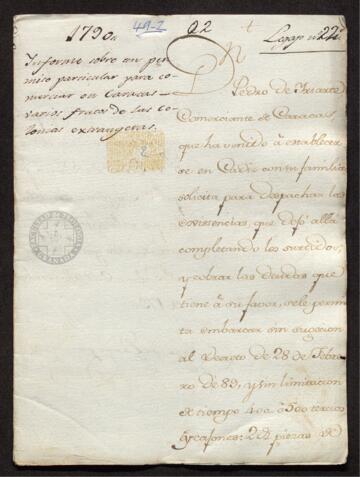 1790
49-2
Q2
Legajo n
Informe sobre un per
miso particular para co
merciar en Caracas
varios frutos de las Co
lonias extrangeras.
2
Dn
Pedro de Yriarte
Comerciante de Caracas,
que ha venido á establecer
se en Cadiz con su familia
solicita para despachar las
existencias, que dejó allá
completando los surtidos,
y cobrar las deudas que
tiene á su favor, se le permi
ta embarcar sin sugecion
al Decreto de 28 de Febre
ro de 89, y sin limitacion
de tiempo 400 á 500 tercios
y cajones: 2 piezas de